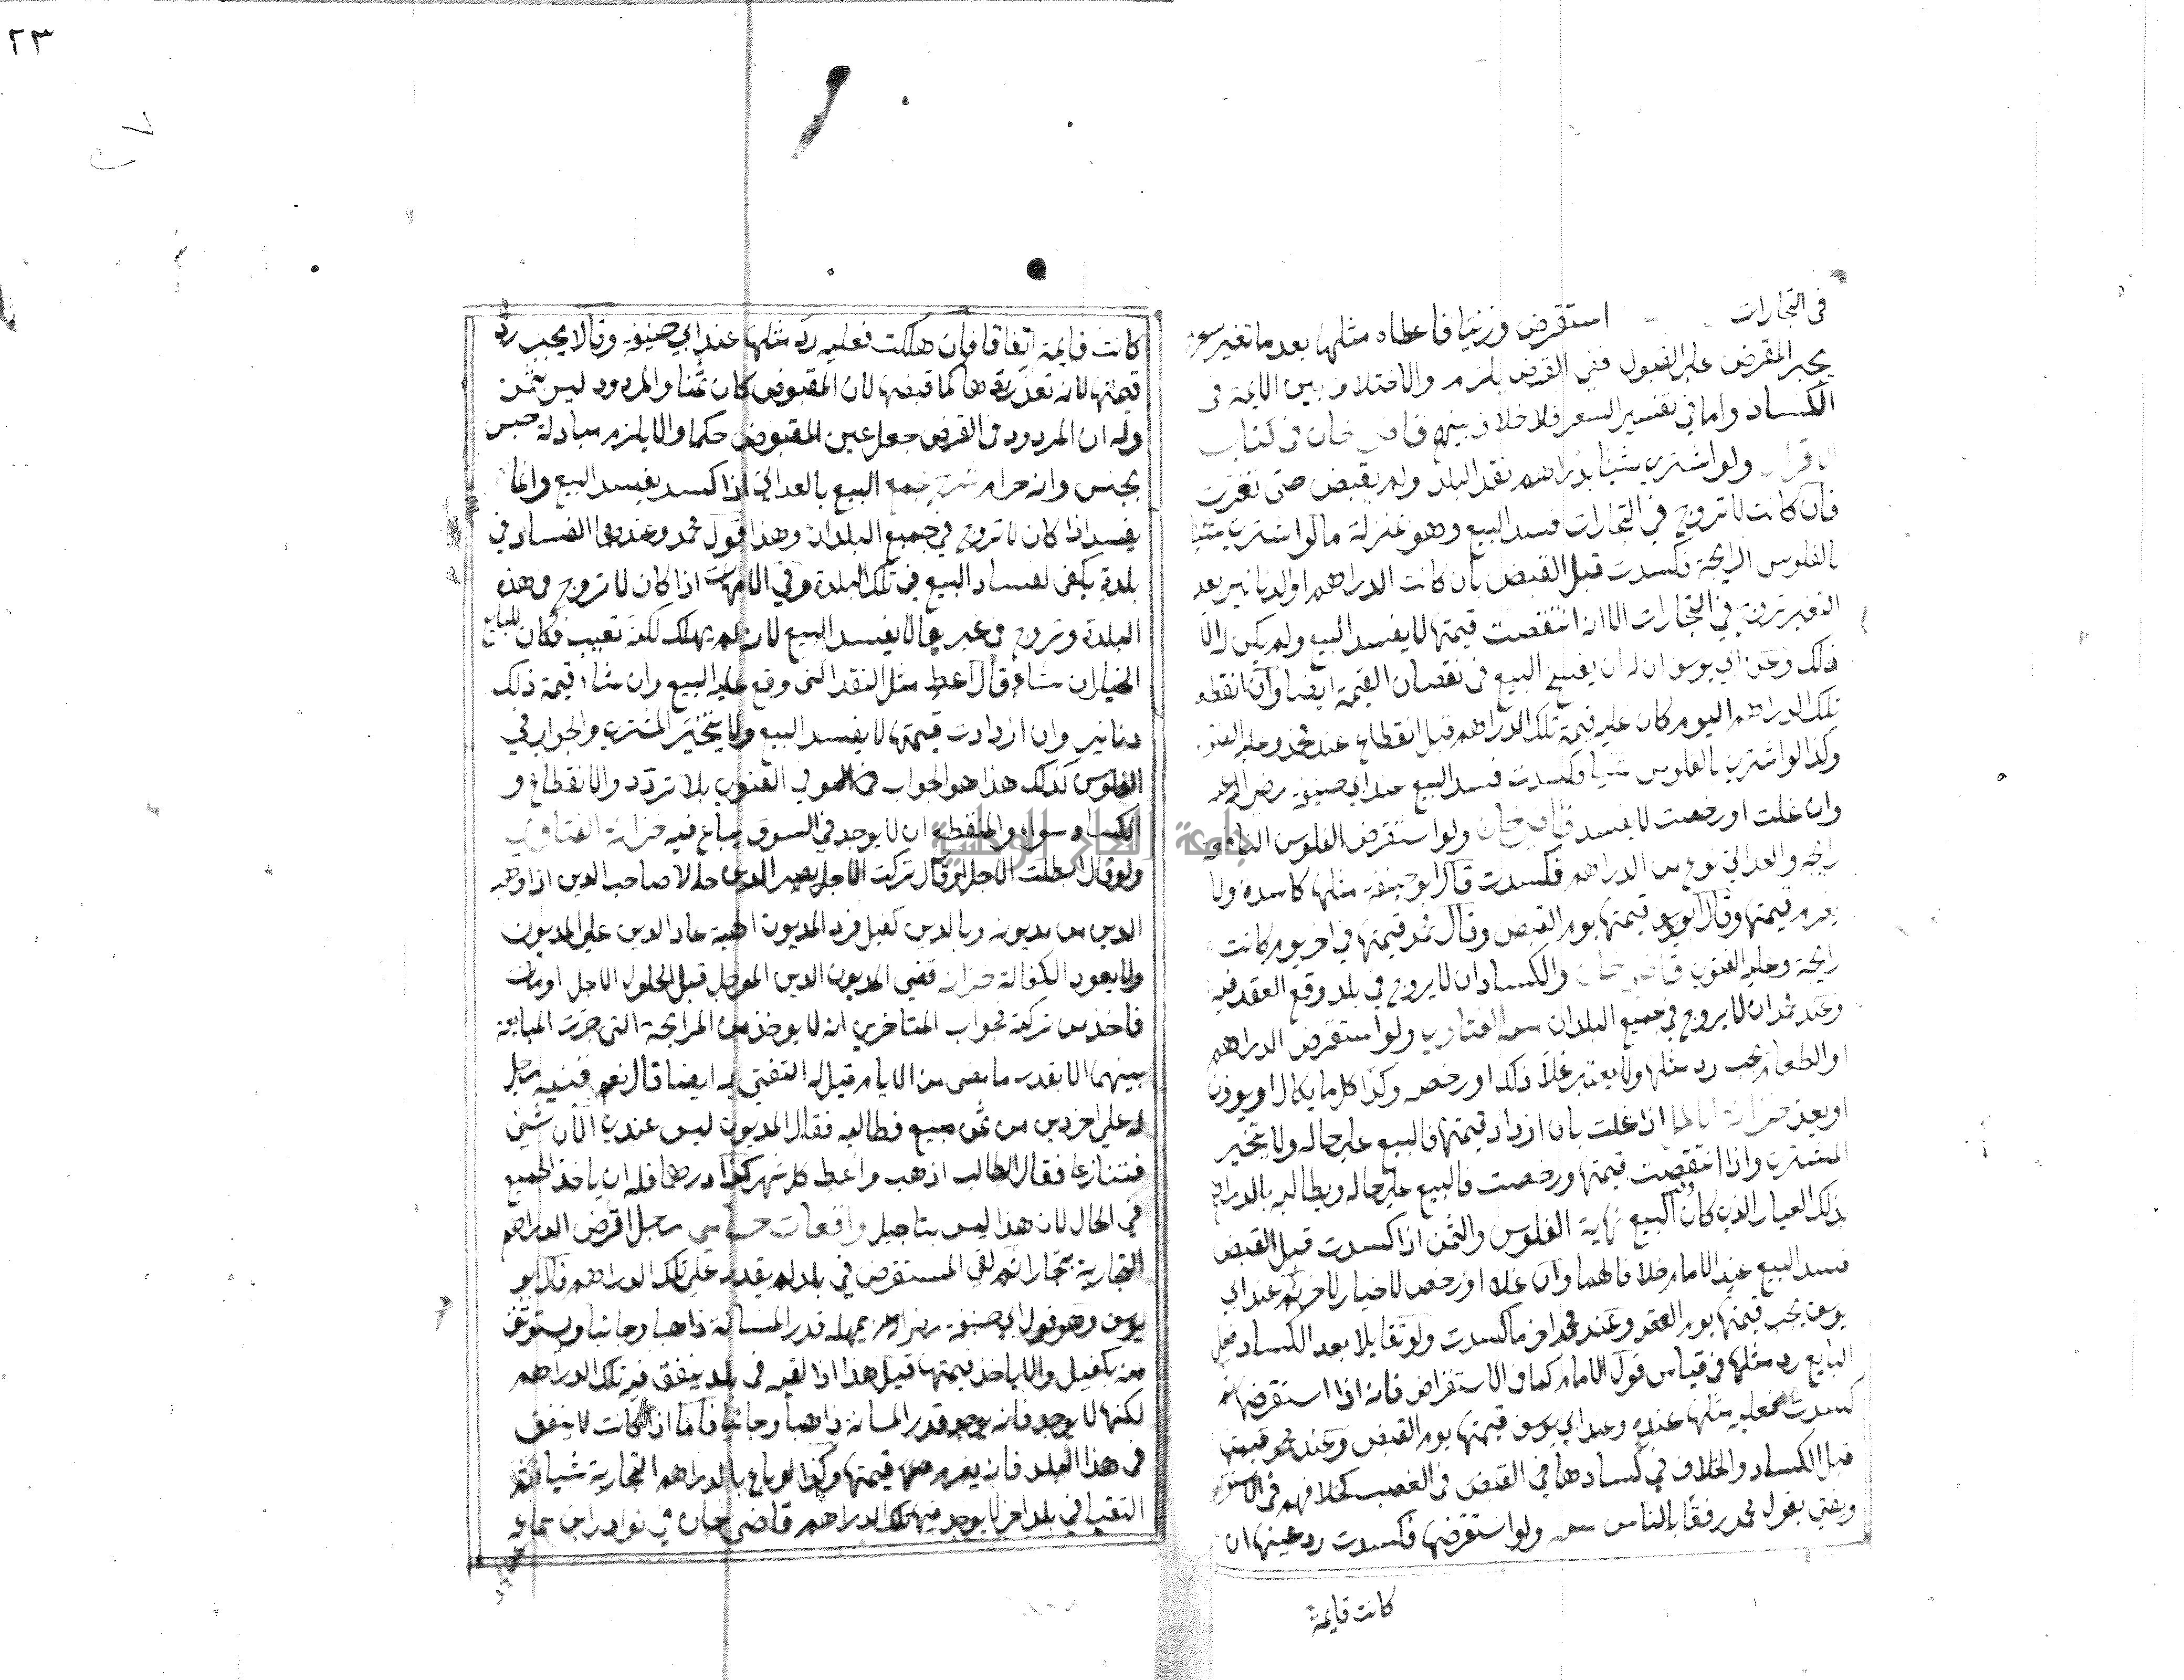 ٢٣
في التجارات استقرض وزنيا فاعطاه مثلها بعد ما تغير سعره
يجبر المقرض على القبول ففي القرض يلزم والاختلاف بين الايمة في
الكساد واما في تفسير السعر فلا خلاف بينهم قاضي خان في كتاب
الاقرار ولو اشترى شيئا بدراهم نقد البلد ولم يقبض حتى تغيرت
فان كانت لا تروج في التجارات فسد البيع وهو بمنزلة ما لو اشترى شيئا
بالفلوس الرايجة فكسدت قبل القبض بان كانت الدراهم او الدنانير بعد
التغير تروج في التجارات الا انه انتقصت قيمتها لا يفسد البيع ولم يكن له الا
ذلك وعن ابي يوسف ان له ان يفسخ البيع في نقصان القيمة ايضا وان انقطع
تلك الدراهم اليوم كان عليه قيمة تلك الدراهم قبل انقطاع عند محمد وعليه الفتوى
وكذا لو اشترى بالفلوس شيئا فكسدت فسد البيع عند ابي حنيفة رضي الله عنه
وان غلت او رخصت لا يفسد قاضي خان ولو استقرض الفلوس
رايجة والعدالي نوع من الدراهم فكسدت قال ابو حنيفة مثلها كاسدة ولا
يغرم قيمتها وقال ابو يوسف قيمتها يوم القبض وقال محمد قيمتها في اخر يوم كانت
رايجة وعليه الفتوى قاضي خان والكساد ان لا يروج في بلد وقع العقد فيه
وعند محمد ان لا يروج في جميع البلدان الفتاوى ولو استقرض الدراهم
او الطعام يجب رد مثلها ولا يعتبر غلا ذلك او رخصه وكذا كل ما يكال او يوزن
او يعد خزانة اذا غلت بان ازداد قيمتها فالبيع على حاله ولا يتخير
المشتري واذا انتقصت قيمتها ورخصت فالبيع على حاله ويطالبه بالدراهم
بذلك العيار الذي كان وقت البيع نهاية الفلوس والثمن اذا كسدت قبل القبض
فسد البيع عند الامام خلافا لهما وان غلا او رخص لا خيار لاخر ثم عند ابي
يوسف يجب قيمتها يوم العقد وعند محمد اخر ما كسدت ولو تقايلا بعد الكساد فعلى
البايع رد مثلها في قياس قول الامام كما في الاستقراض فانه اذا استقرضها ثم
كسدت فعليه مثلها عنده وعند ابي يوسف قيمتها يوم القبض وعند محمد قيمتها
قبل الكساد والخلاف في كسادها في القبض في الغصب كخلافهم في الاستقراض
ويفتى بقول محمد رفقا بالناس ولو استقرضها فكسدت رد عينها ان
كانت قايمة
كانت قايمة اتفاقا فان هلكت فعليه رد مثلها عند ابي حنيفة وقالا يجب رد
قيمتها لانه تعذر ردها كما قبضها لان المقبوض كان ثمنا والمردود ليس بثمن
وله ان المردود في القرض جعل عين المقبوض حكما والا يلزم مبادلة جنس
بجنس وانه حرام شرح مجمع البيع بالعدالي اذا كسد يفسد البيع وانما
يفسد اذا كان لا تروج في جميع البلدان وهذا قول محمد وعندهما الفساد في
بلدة يكفي لفساد البيع في تلك البلدة وفي الامهات اذا كان لا تروج في هذه
البلدة وتروج في غيرها لا يفسد البيع لانه لم يهلك لكنه تعيب فكان للبايع
الخيار ان شاء قال اعط مثل النقد الذي وقع عليه البيع وان شاء قيمة ذلك
دنانير وان ازدادت قيمتها لا يفسد البيع ولا يتخير المشتري والجواب في
الفلوس كذلك هذا هو الجواب في الفتوى بلا تردد والانقطاع و
الكساد سواء والمنقطع ان لا يوجد في السوق يباع فيه خزانة الفتاوى
ولو قال ابطلت الاجل او قال تركت الاجل يصير الدين حالا صاحب الدين اذا وهب
الدين من مديونه وبالدين كفيل فرد المديون الهبة عاد الدين على المديون
ولا يعود الكفالة خزانة قضى المديون الدين المؤجل قبل الحلول الاجل او مات
فاخذ من تركته فجواب المتاخرين انه لا يوخذ من المرابحة التي جرت المبايعة
بينهما الا بقدر ما مضى من الايام قيل له اتفتي به ايضا قال نعم قنيه رجل
له على اخر دين من ثمن مبيع فطالبه فقال المديون ليس عندي الان شيئ
فتنازعا فقال الطالب اذهب واعط كل شهر كذا درهما فله ان ياخذ الجميع
في الحال لان هذا ليس بتاجيل واقعات حسامي رجل اقرض الدراهم
التجارية ثم لقي المستقرض في بلد لم يقدر على تلك الدراهم قال ابو
يوسف وهو قول ابي حنيفة يمهله قدر المسافة ذاهبا وجائيا ويستوثق
منه بكفيل والا ياخذ قيمتها قيل هذا اذا لقيه في بلد ينفق فيه تلك الدراهم
لكنها لا يوجد فانه يوجد قدر المسافة ذاهبا وجائيا فاما اذا كانت لا ينفق
في هذا البلد فانه يغرم قيمتها وكذا لو باع بالدراهم التجارية شيئا ثم
التقيا في بلد اخر لا يوجد فيها تلك الدراهم قاضي خان في نوادر ابن سماعة